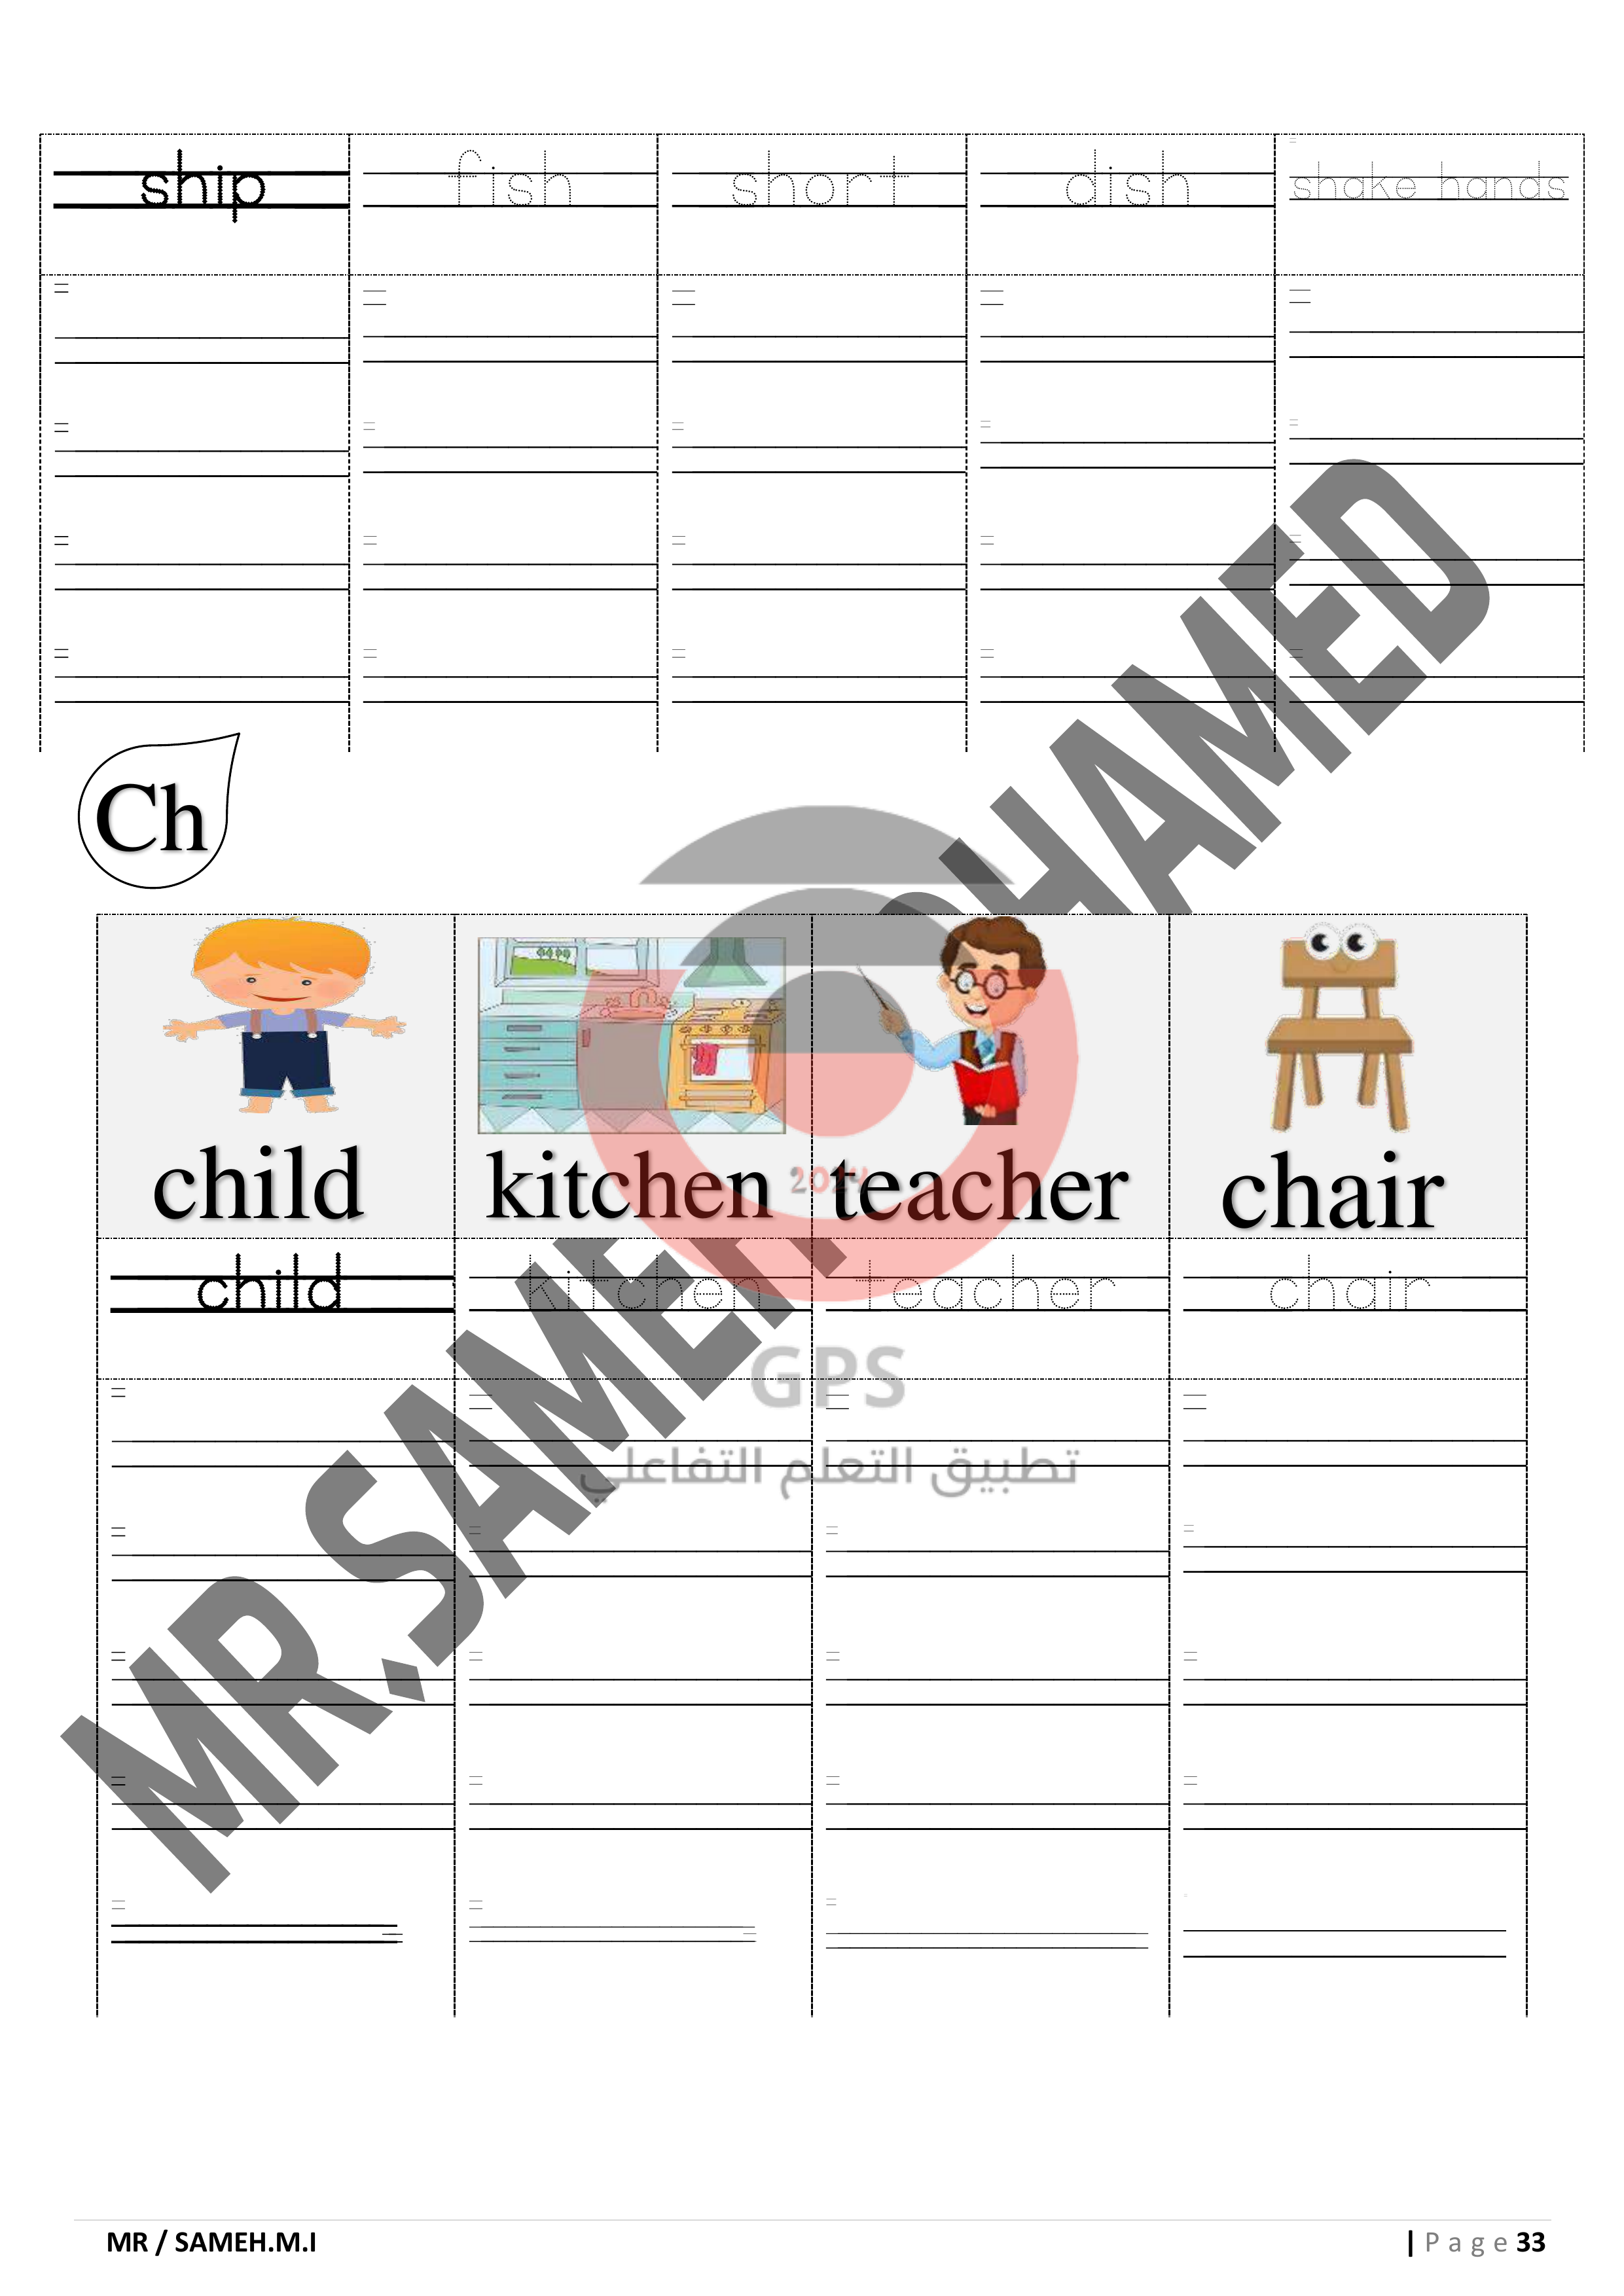 ship fish short dish shake hands
Ch
child kitchen teacher chair
child kitchen teacher chair
2024
GPS
تطبيق التعلم التفاعلي
MR / SAMEH.M.I | Page 33